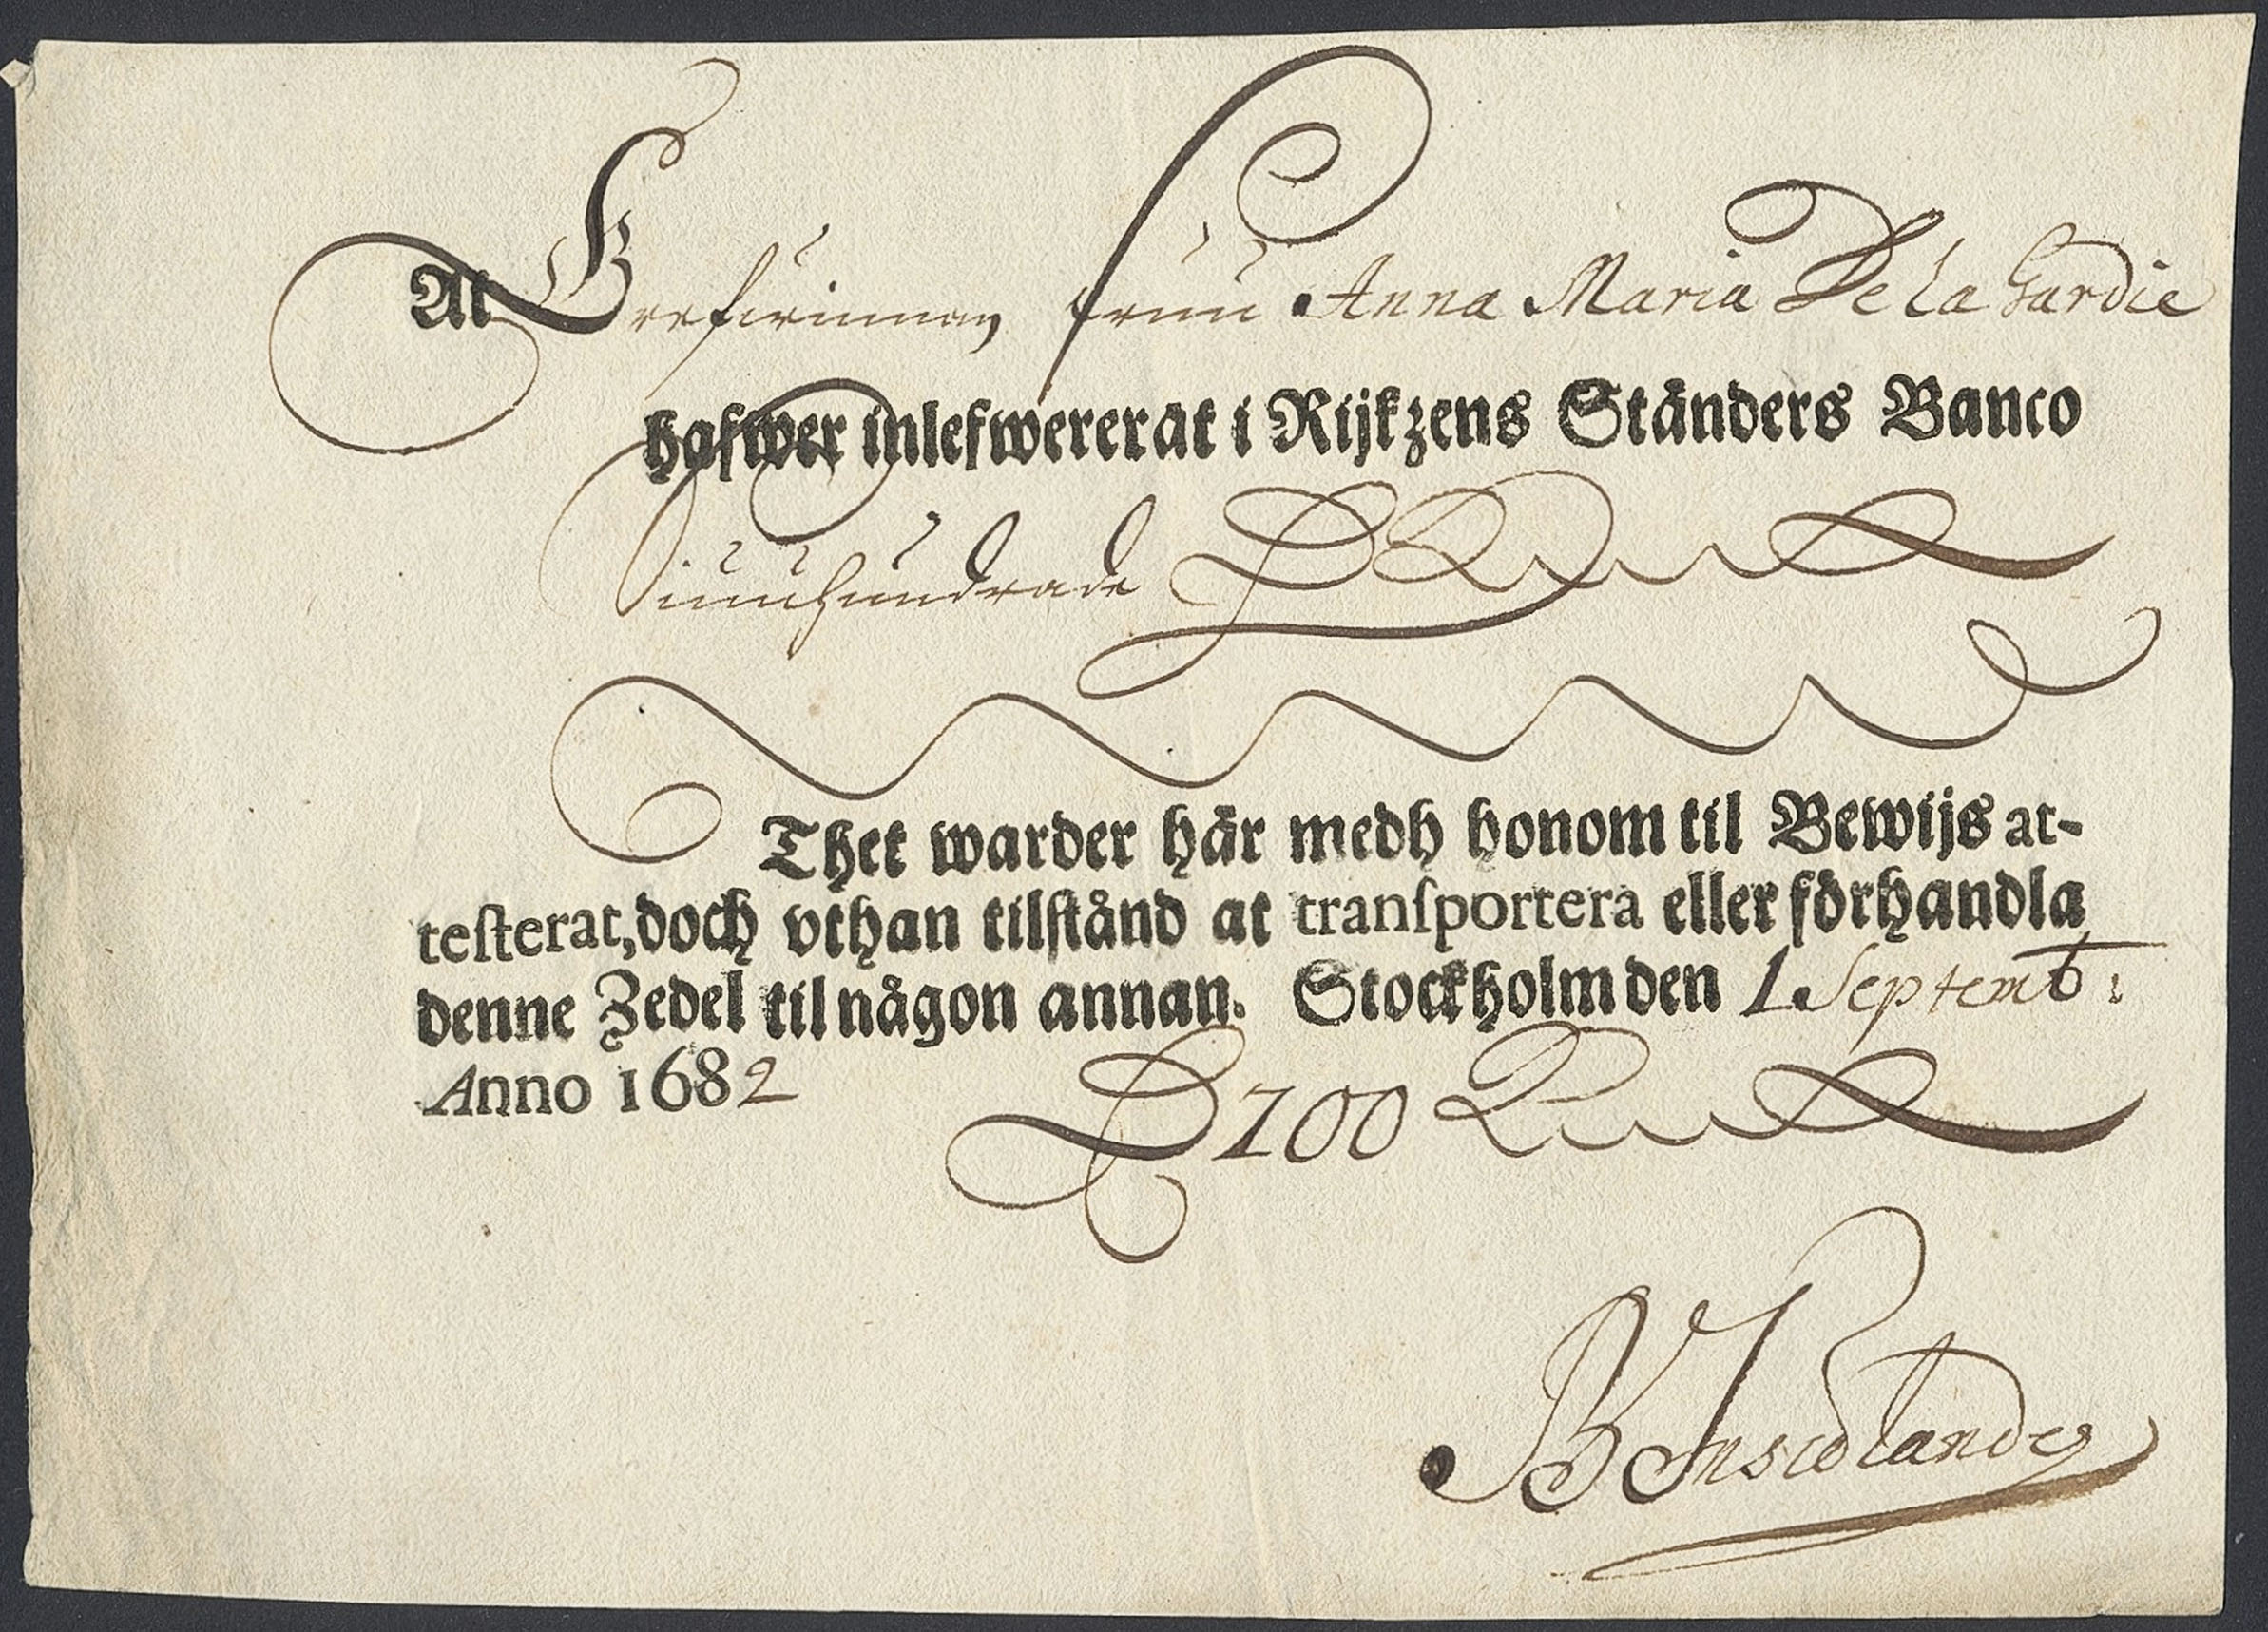 At Grefwinnan fruu Anna Maria De la Gardie
hafwer inlefwererat i Rijkzens Ständers Banco
Siuuhundrade D
Thet warder här medh honom til Bewijs at-
testerat, doch vthan tilstånd at transportera eller förhandla
denne Zedel til någon annan. Stockholm den 1 Septemb:
Anno 1682
D 700